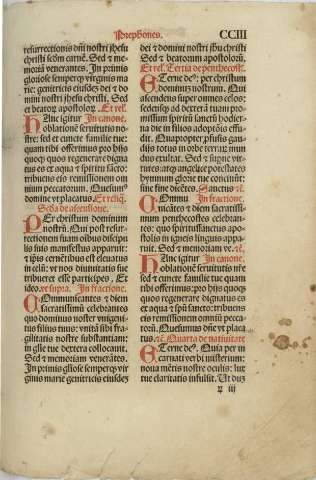 Prephones.
CCIII
resurrectionis dñi nostri jhesu
christi scďm carnē. Sed & me-
moriā venerantes. In primis
gloriose semperqȝ virginis ma-
rie: genitricis eiusdeȝ dei & do
mini nostri jhesu christi. Sed
et beatoꝝ apostoloꝝ. Et rel'.
Hanc igitur In canone.
oblationē seruitutis no-
stre: sed et cuncte familie tue:
quam tibi offerimus pro hijs
quoqȝ quos regenerare digna
tus es ex aqua & spiritu sacro:
tribuens eis remissionem om
nium peccatorum. Quesum9
domine vt placatus. Et reliq.
Scďa de ascensione.
Per christum dominum
nostrū. Qui post resur-
rectionem suam oībus discipu
lis suis manifestus apparuit:
& ipsis cernētibus est eleuatus
in celū: vt nos diuinitatis sue
tribueret esse participes. Et
ideo. vt supra. In fractione.
Communicantes & diem
sacratissimū celebrantes
quo dominus noster vnigeni-
tus filius tuus: vnitā sibi fra-
gilitatis nostre substantiam:
in glie tue dextera collocauit.
Sed & memoriam venerātes.
In primis gliose semperqȝ vir
ginis marie genitricis eiusdeȝ
dei & domini nostri ihu christi
Sed & beatorum apostoloꝝ.
Et rel'. Tertia de penthecost.
Eterne de9: per christum
dominum nostrum. Qui
ascendens super omnes celos:
sedensqȝ ad dexterā tuam pro-
missum spiritū sanctū hodier-
na die in filios adoptōis effu
dit. Quapropter pfusis gau-
dijs totus in orbe terraꝝ mun
dus exultat. Sed & supne virtu-
tes: atqȝ angelice potestates
hymnum glorie tue concinūt:
sine fine dicētes. Sanctus &ē.
Comnu In fractione.
nicantes & diem sacratissi-
mum penthecostes celebran-
tes: quo spiritussanctus apo-
stolis in igneis linguis appa-
ruit. Sed & memoriam ve. &ē.
Hanc igitur In canone.
oblationē seruitutis nr̄e
sed & cuncte familie tue: quā
tibi offerimus: pro hijs quoqȝ
quos regenerare dignatus es
ex aqua & spū sancto: tribuens
eis remissionē omniū pctōrū.
Quesumus dñe vt placa
tus. &ē. Quarta de natiuitate
Eterne de9. Quia per in
carnati verbi misterium:
noua mētis nostre oculis: lux
tue claritatis infulsit. Ut duȝ
iij